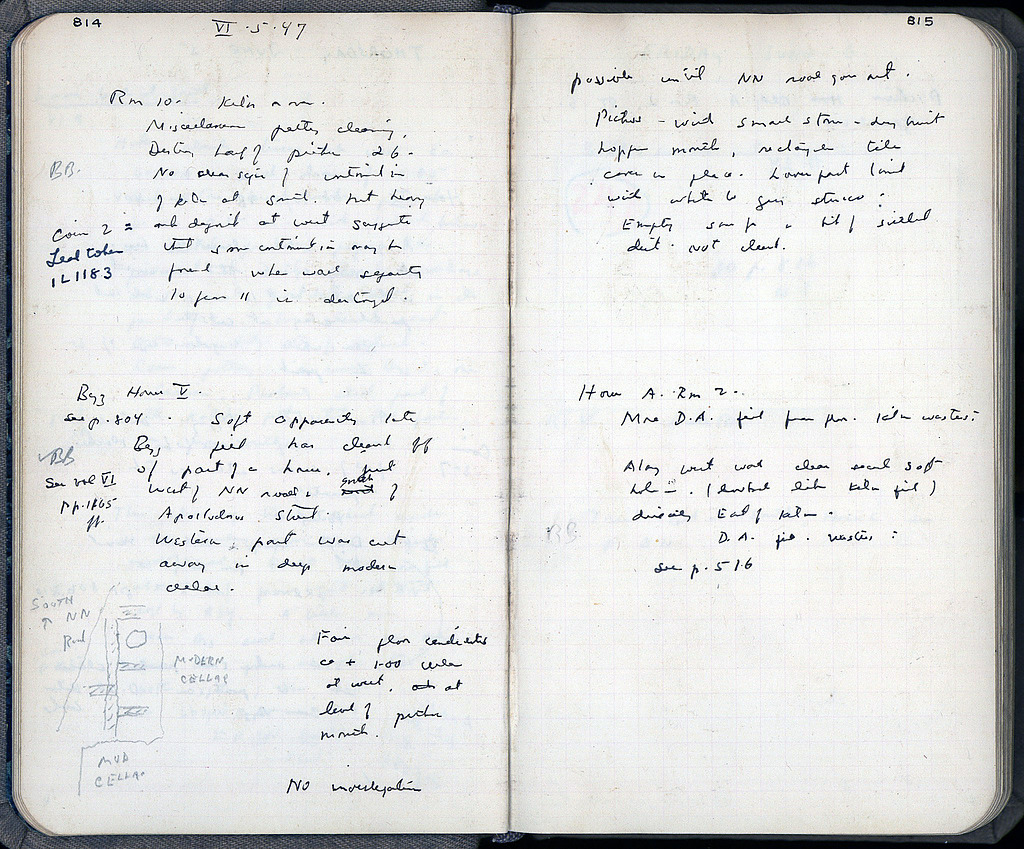 814
VI · 5 · 47
Rm 10. Kiln room.
Miscellaneous pottery cleaning.
Destroy half of pithos 26.
BB.
No clear sign of continuation
of kiln at south. but heavy
Coin 2 = ash deposit at west suggests
Lead token
that some continuation may be
IL1183
found when wall separating
10 from 11 is destroyed.
Byz House V.
See p. 804. Soft apparently late
Byz fill has cleared off
BB
of part of a house, just
See vol VI
west of NN road, south of
pp. 1165
ff.
Apostolou Street.
Western part was cut
away in deep modern
cellar.
SOUTH
NN
Road
MODERN
CELLAR
MUD
CELLAR
floor
ca + 1.00
at west, at
level of pithos
mouth.
No investigation
815
possible until NN road goes out.
Pithos - with small stone - dry built
hopper mouth, rectangular tile
cover in place. Lower part lined
with white to gray stucco:
Empty save for a bit of sifted
dirt. Not cleared.
House A. Rm 2.
More D.A. fill from kiln wasters:
Along west wall clear small soft
hole. (looked like kiln fill)
directly East of kiln.
BB
D.A. fill. wasters:
see p. 516